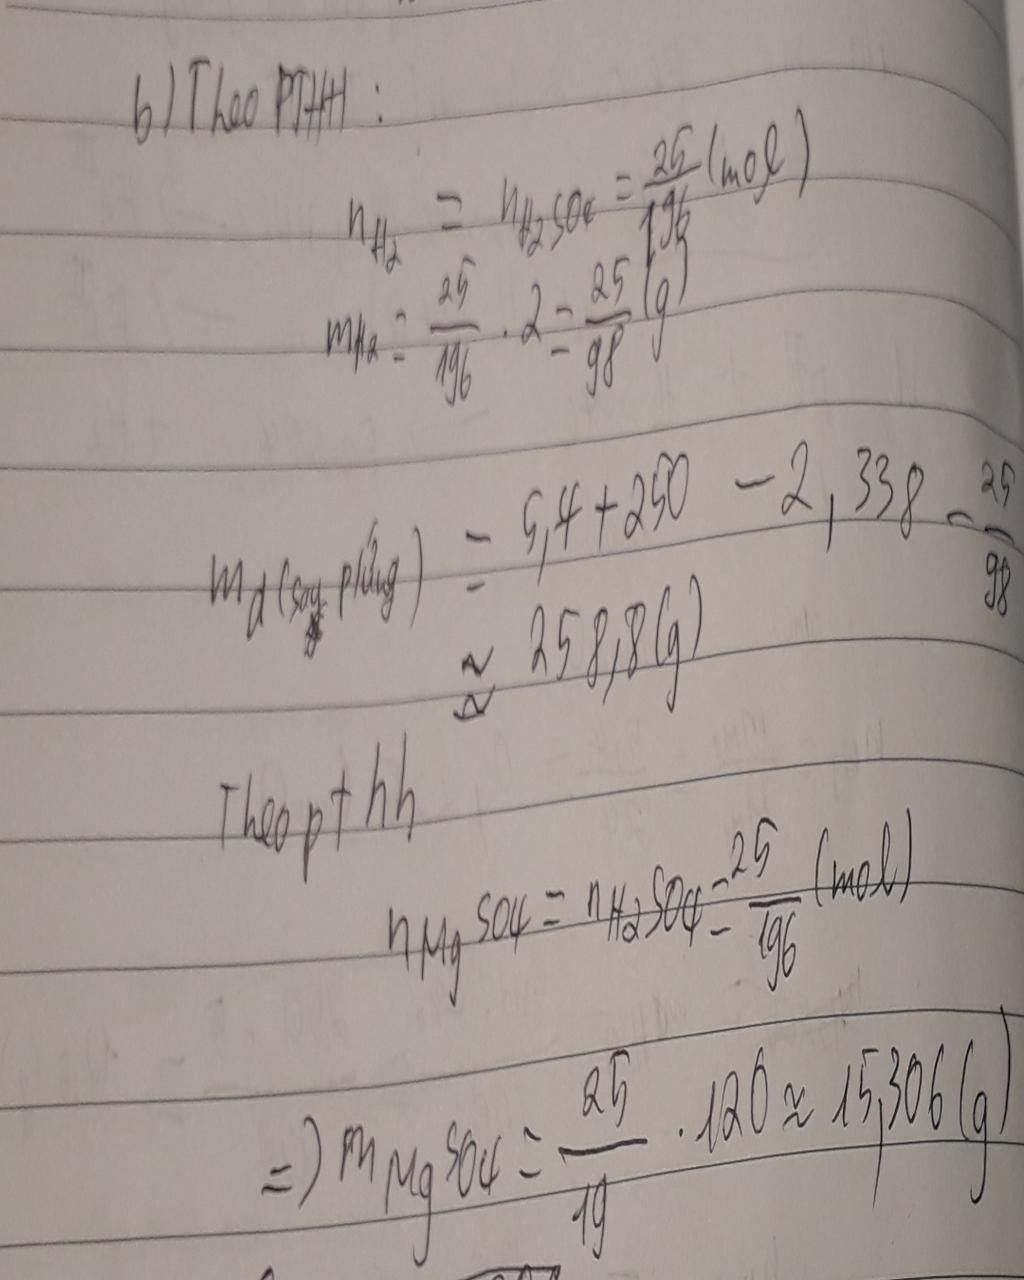 b) Theo PTHH:
nH2 = nH2SO4 = 25/196 (mol)
mH2 = 25/196 . 2 = 25/98 (g)
md (say phứng) = 5,4 + 250 - 2,338 - 25/98
≈ 258,8 (g)
Theo pthh
nMgSO4 = nH2SO4 = 25/196 (mol)
=> mMgSO4 = 25/19 . 120 ≈ 15,306 (g)